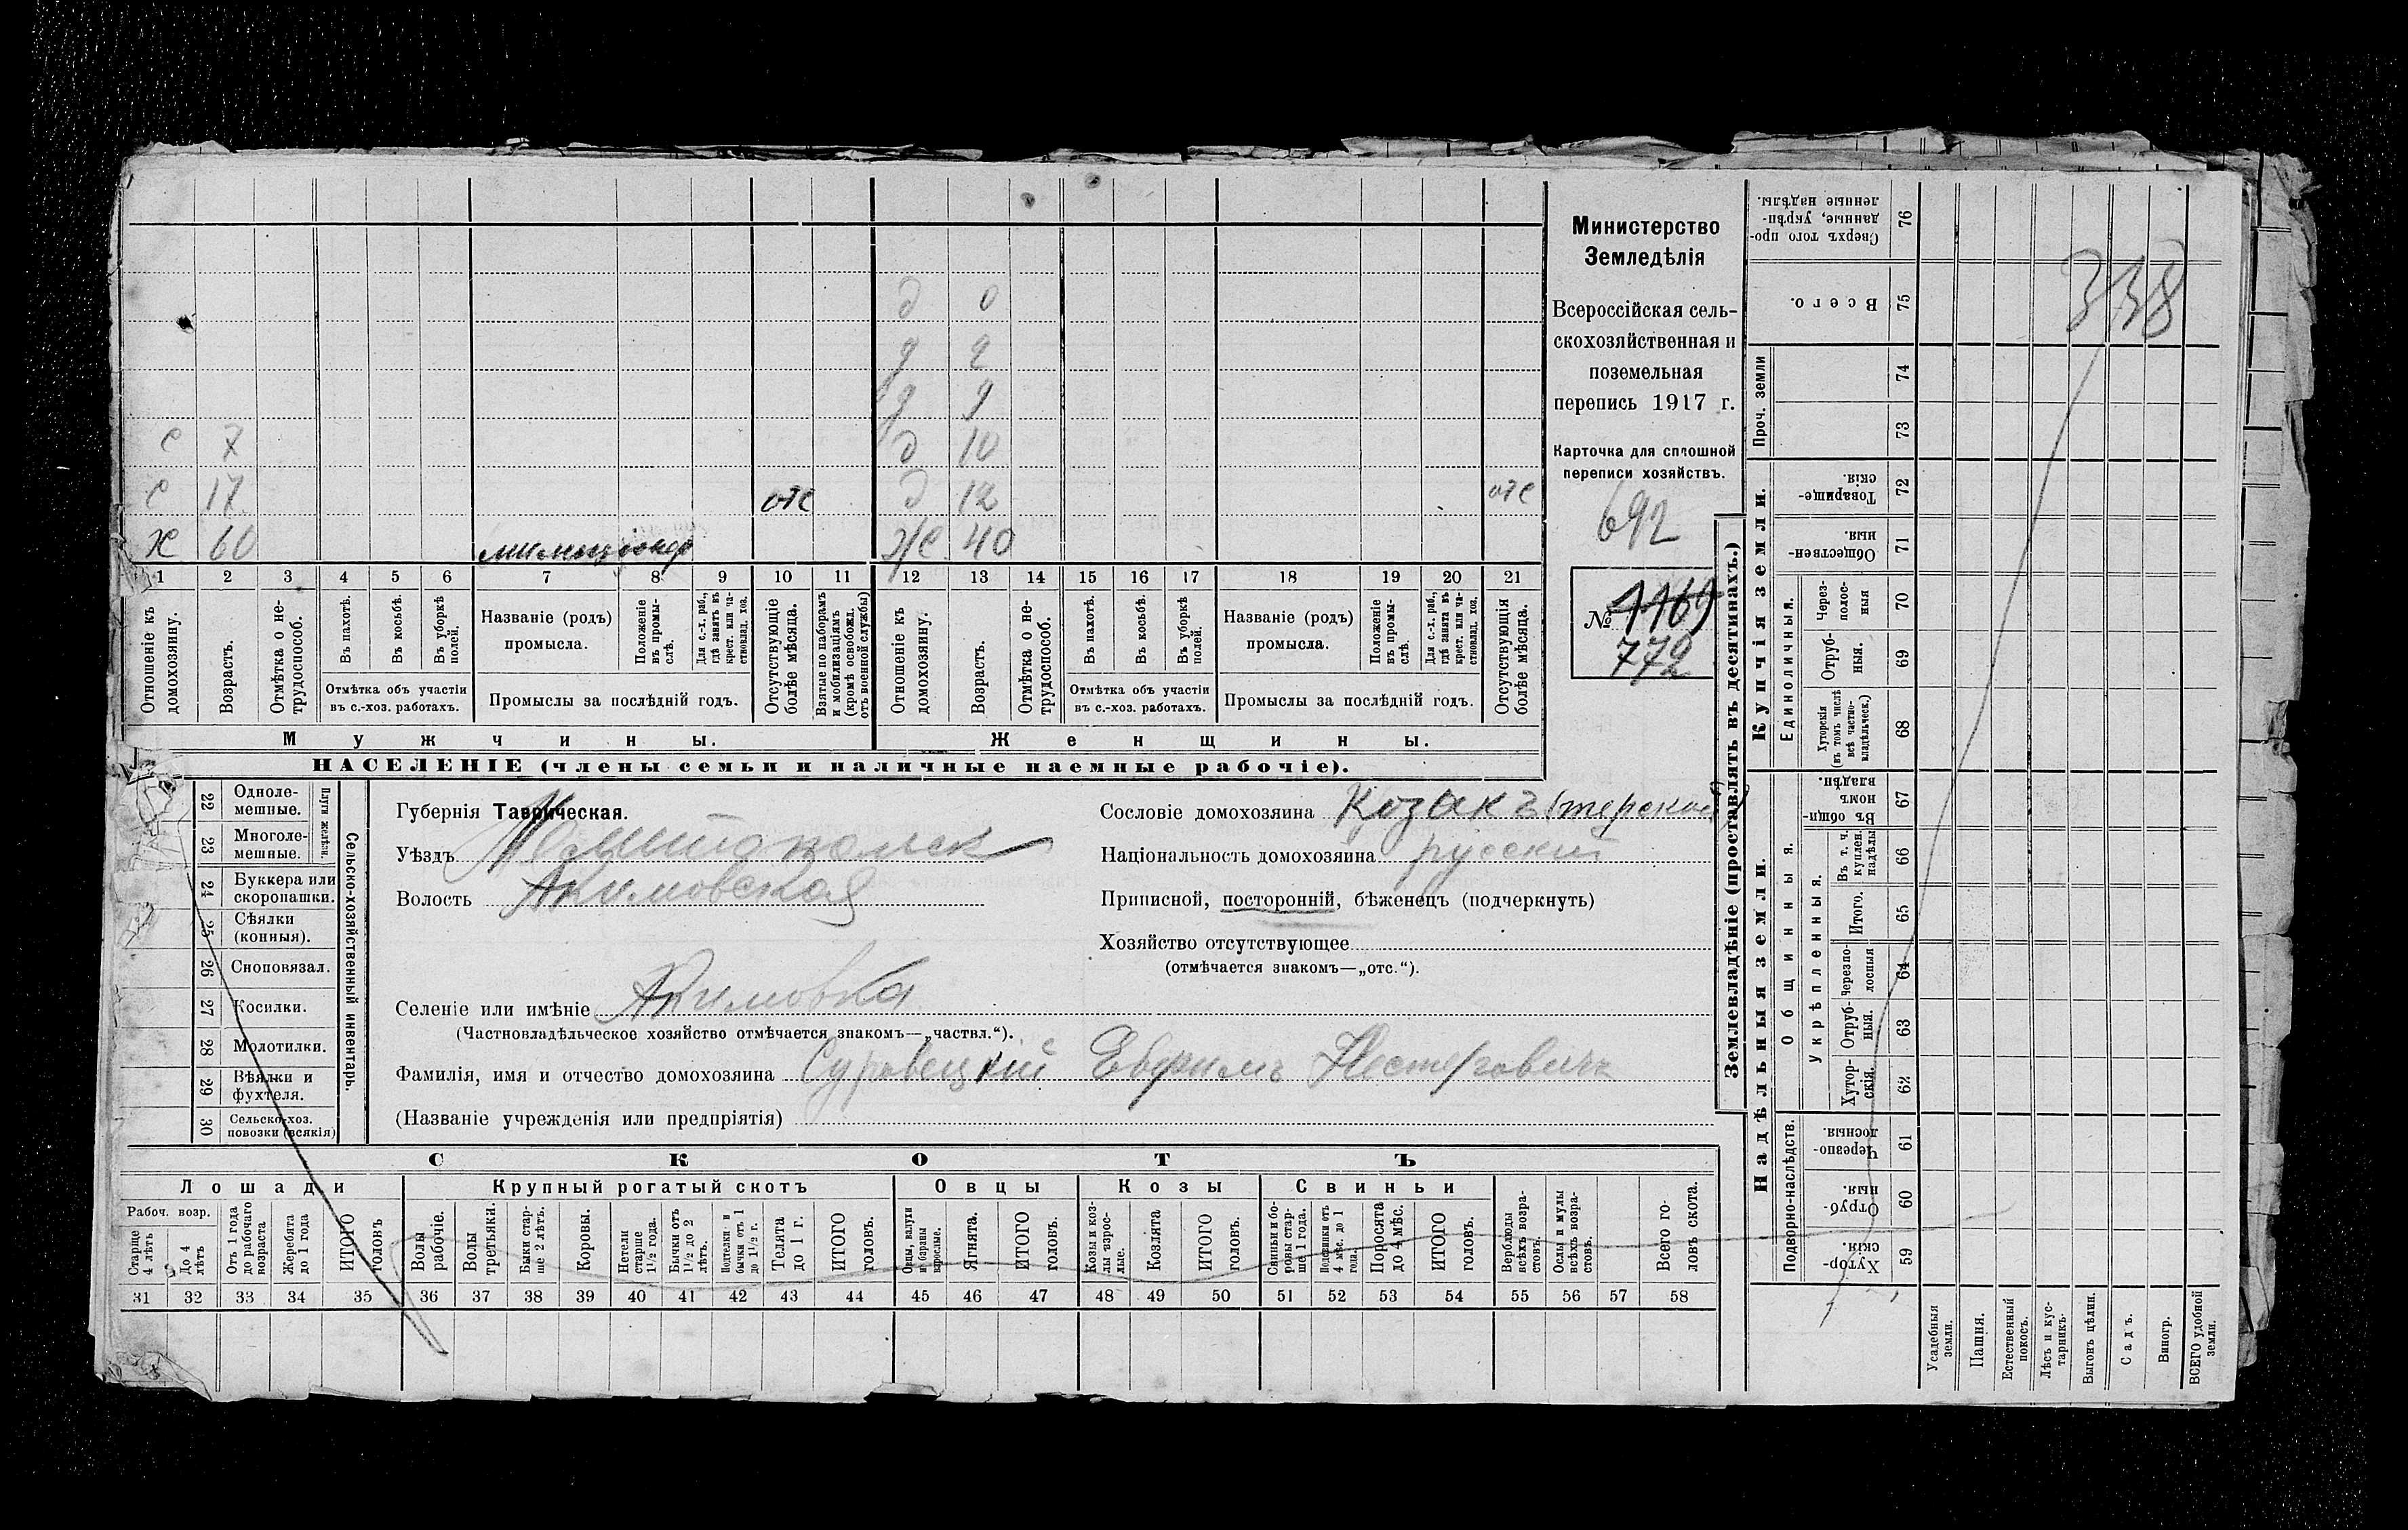 д 0
д 2
д 9
с 7 д 10
с 17 отс д 12 отс
х 60 милиционер ж 40
1 2 3 4 5 6 7 8 9 10 11 12 13 14 15 16 17 18 19 20 21
Отношеніе къ домохозяину.
Возрастъ.
Отмѣтка о не-
трудоспособ.
Въ пахотѣ.
Въ косьбѣ.
Въ уборкѣ полей.
Отмѣтка объ участіи
въ с.-хоз. работахъ.
Названіе (родъ)
промысла.
Положеніе въ промы-
слѣ.
Для с.-х. раб.,
гдѣ занятъ въ
крест. или ча-
стновлад. хоз.
Промыслы за послѣдній годъ.
Отсутствующіе
болѣе мѣсяца.
Взятые по наборамъ
и мобилизаціямъ
(кромѣ освобожд.
отъ военной службы)
Отношеніе къ домохозяину.
Возрастъ.
Отмѣтка о не-
трудоспособ.
Въ пахотѣ.
Въ косьбѣ.
Въ уборкѣ полей.
Отмѣтка объ участіи
въ с.-хоз. работахъ.
Названіе (родъ)
промысла.
Положеніе въ промы-
слѣ.
Для с.-х. раб.,
гдѣ занята въ
крест. или ча-
стновлад. хоз.
Промыслы за послѣдній годъ.
Отсутствующія
болѣе мѣсяца.
Мужчины.
Женщины.
НАСЕЛЕНІЕ (члены семьи и наличные наемные рабочіе).
Министерство
Земледѣлія
Всероссійская сель-
скохозяйственная и
поземельная
перепись 1917 г.
Карточка для сплошной
переписи хозяйствъ.
692
№ 1169
772
22 Одноле-
мешные.
23 Многоле-
мешные.
Плуги желѣзн.
24 Буккера или
скоропашки.
25 Сѣялки
(конныя).
26 Сноповязал.
27 Косилки.
28 Молотилки.
29 Вѣялки и
фухтеля.
30 Сельско-хоз.
повозки (всякія)
Сельско-хозяйственный инвентарь.
Губернія Таврическая.
Уѣздъ Мелитопольск
Волость Акимовская
Селеніе или имѣніе Акимовка
(Частновладѣльческое хозяйство отмѣчается знакомъ—„частвл.“).
Фамилія, имя и отчество домохозяина Суровецкій Евфимъ Нестеровичъ
(Названіе учрежденія или предпріятія)
Сословіе домохозяина Козакъ (терской)
Національность домохозяина русскій
Приписной, посторонній, бѣженецъ (подчеркнуть)
Хозяйство отсутствующее
(отмѣчается знакомъ—„отс.“).
СКОТЪ
Лошади
Рабоч. возр.
Старше
4 лѣтъ
До 4
лѣтъ
Отъ 1 года
до рабочаго
возраста
Жеребята
до 1 года
ИТОГО
головъ
Крупный рогатый скотъ
Волы
рабочіе.
Волы
третьяки.
Быки стар-
ше 2 лѣтъ.
Коровы.
Нетели
старше
1½ года.
Бычки отъ
1½ до 2
лѣтъ.
Подтелки и
бычки отъ 1
до 1½ г.
Телята
до 1 г.
ИТОГО
головъ.
Овцы
Овцы, валухи
и бараны
взрослые.
Ягнята.
ИТОГО
головъ.
Козы
Козы и коз-
лы взрос-
лые.
Козлята
ИТОГО
головъ.
Свиньи
Свиньи и бо-
ровы стар-
ше 1 года.
Подсвинки отъ
4 мѣс. до 1
года.
Поросята
до 4 мѣс.
ИТОГО
головъ.
Верблюды
всѣхъ возра-
стовъ.
Ослы и мулы
всѣхъ возра-
стовъ.
Всего го-
ловъ скота.
31 32 33 34 35 36 37 38 39 40 41 42 43 44 45 46 47 48 49 50 51 52 53 54 55 56 57 58
Землевладѣніе (проставлять въ десятинахъ.)
Надѣльныя земли.
Подворно-наслѣдств.
Хутор-
скія. 59
Отруб-
ныя. 60
Черезпо-
лосныя. 61
Общинныя.
Укрѣпленныя.
Хутор-
скія. 62
Отруб-
ныя. 63
Черезпо-
лосныя 64
Итого. 65
Въ т. ч.
куплен.
надѣлы 66
Въ общин-
номъ
владѣн. 67
Купчія земли.
Единоличныя.
Хуторскія
(въ томъ числѣ
всѣ частно-
владѣльческ.) 68
Отруб-
ныя. 69
Через-
полос-
ныя 70
Обществен-
ныя. 71
Товарище-
скія. 72
Проч. земли
73
74
Всего. 75
Сверхъ того про-
данные, укрѣп-
ленные надѣлы. 76
338
Усадебныя
земли.
Пашня.
Естественный
покосъ.
Лѣсъ и кус-
тарникъ.
Выгонъ цѣлин.
Садъ.
Виногр.
ВСЕГО удобной
земли.